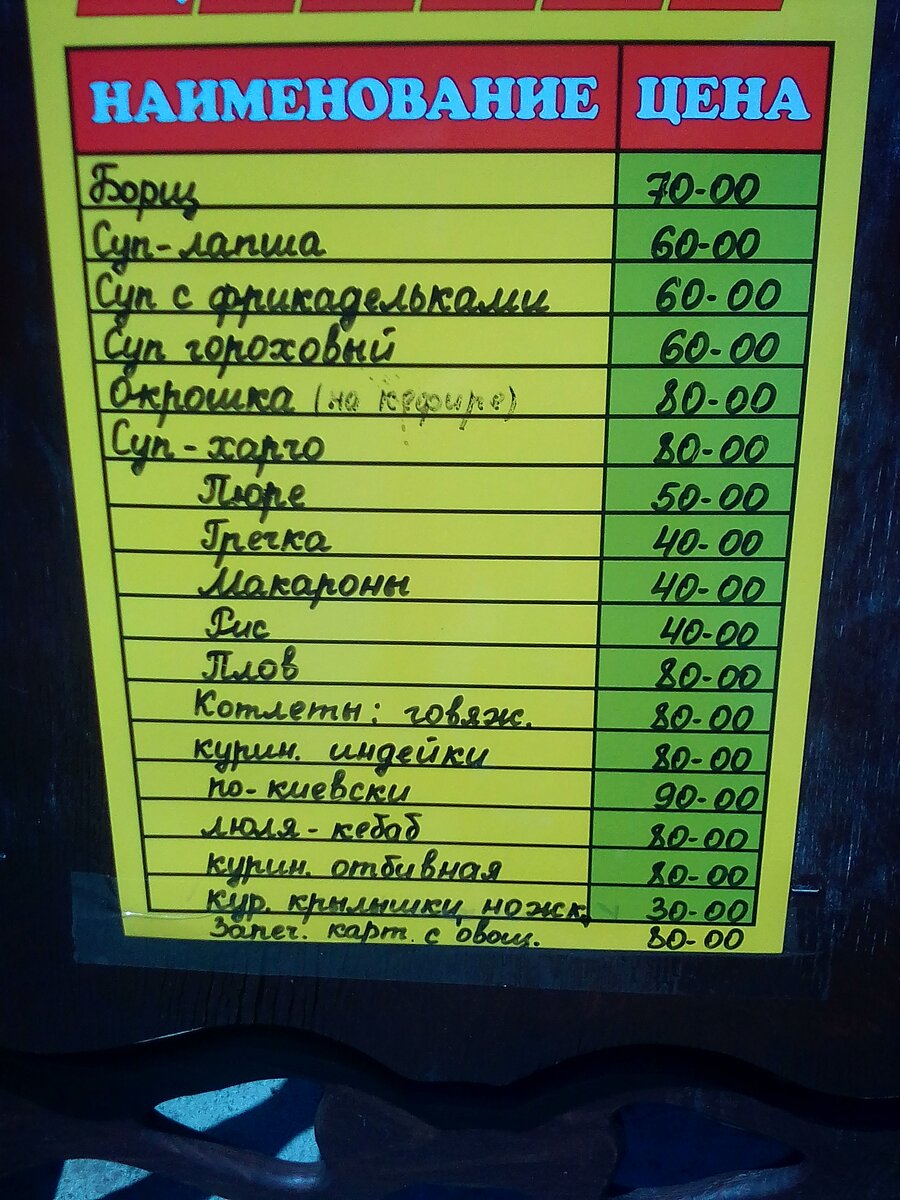 НАИМЕНОВАНИЕ ЦЕНА
Борщ 70-00
Суп-лапша 60-00
Суп с фрикадельками 60-00
Суп гороховый 60-00
Окрошка (на кефире) 80-00
Суп-харчо 80-00
Пюре 50-00
Гречка 40-00
Макароны 40-00
Рис 40-00
Плов 80-00
Котлеты: говяж. 80-00
курин. индейки 80-00
по-киевски 90-00
люля-кебаб 80-00
курин. отбивная 80-00
кур. крылышки, ножк. 30-00
Запеч. карт. с овощ. 80-00